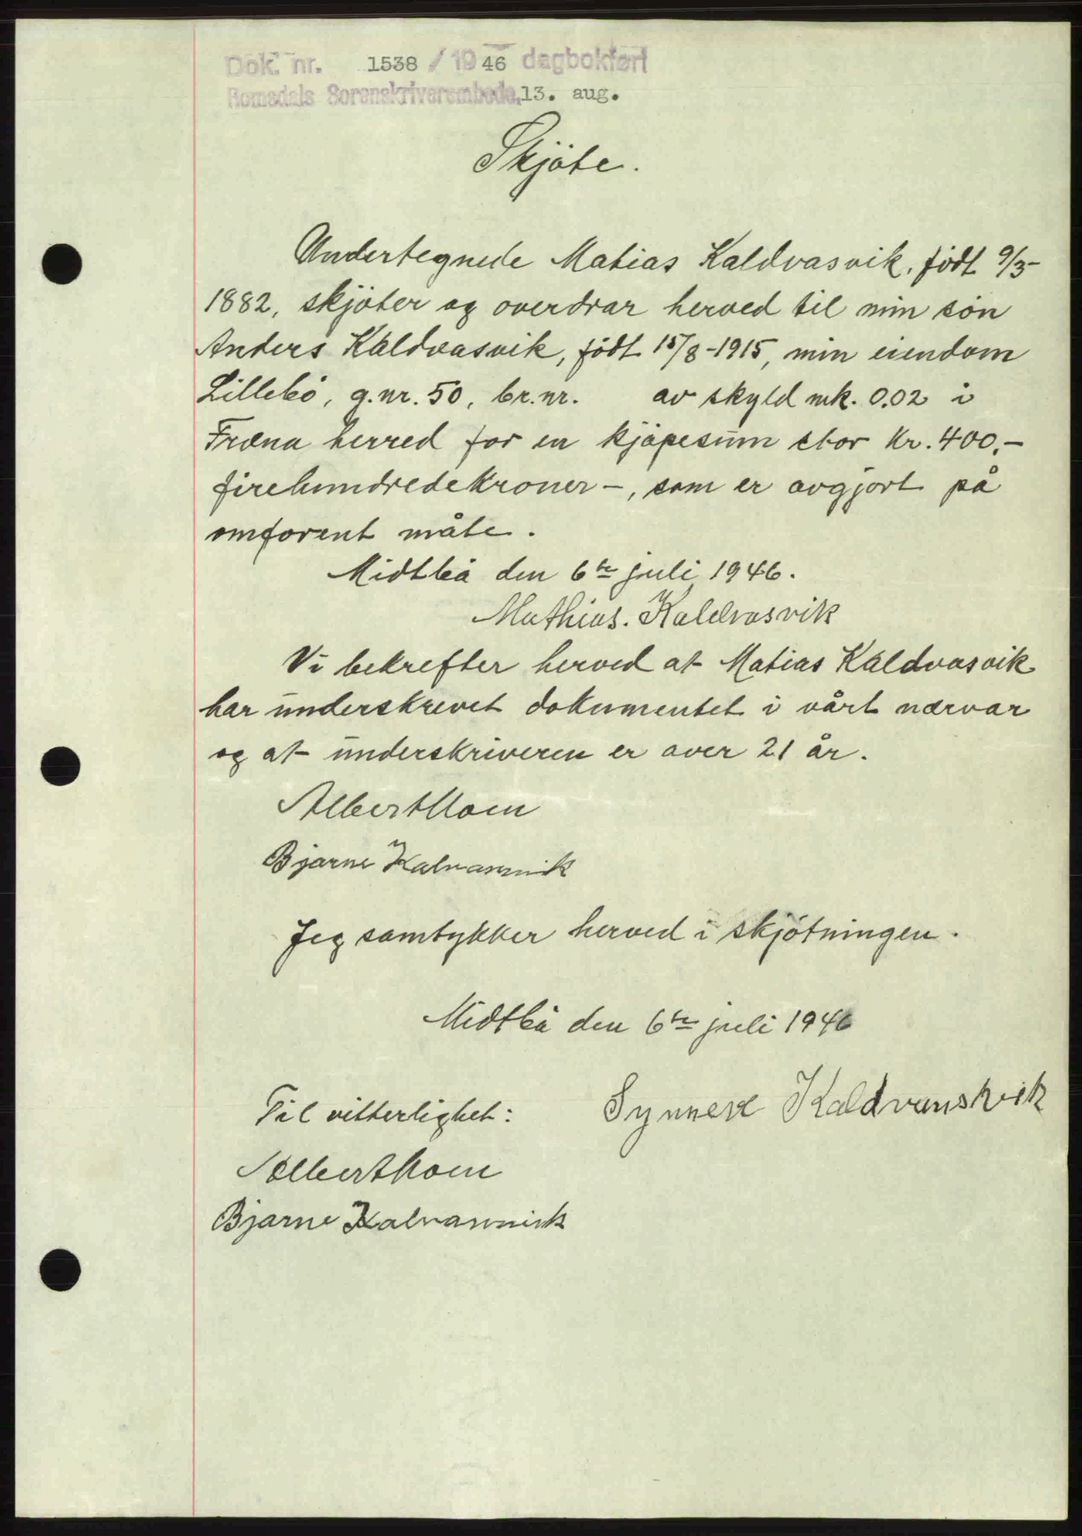 Dok. nr. 1538 / 1946 dagbokført
Romsdals Sorenskriverembede, 13. aug.
Skjöte.
Undertegnede Matias Kaldvasvik, född 9/3-
1882, skjöter og overdrar herved til min sön
Anders Kaldvasvik, född 15/8-1915, min eiendom
Lillebö, g.nr. 50, br.nr. av skyld mk. 0.02 i
Fræna herred for en kjöpesum stor kr. 400,-
firehundredekroner-, som er avgjort på
omforent måte.
Midtbö den 6te juli 1946.
Mathias. Kaldvasvik
Vi bekrefter herved at Matias Kaldvasvik
har underskrevet dokumentet i vårt nærvær
og at underskriveren er over 21 år.
Albert Moen
Bjarne Kalvasvik
Jeg samtykker herved i skjötningen.
Midtbö den 6te juli 1946
Til vitterlighet:
Kaldvanskvik
Albert Moen
Bjarne Kalvasvik